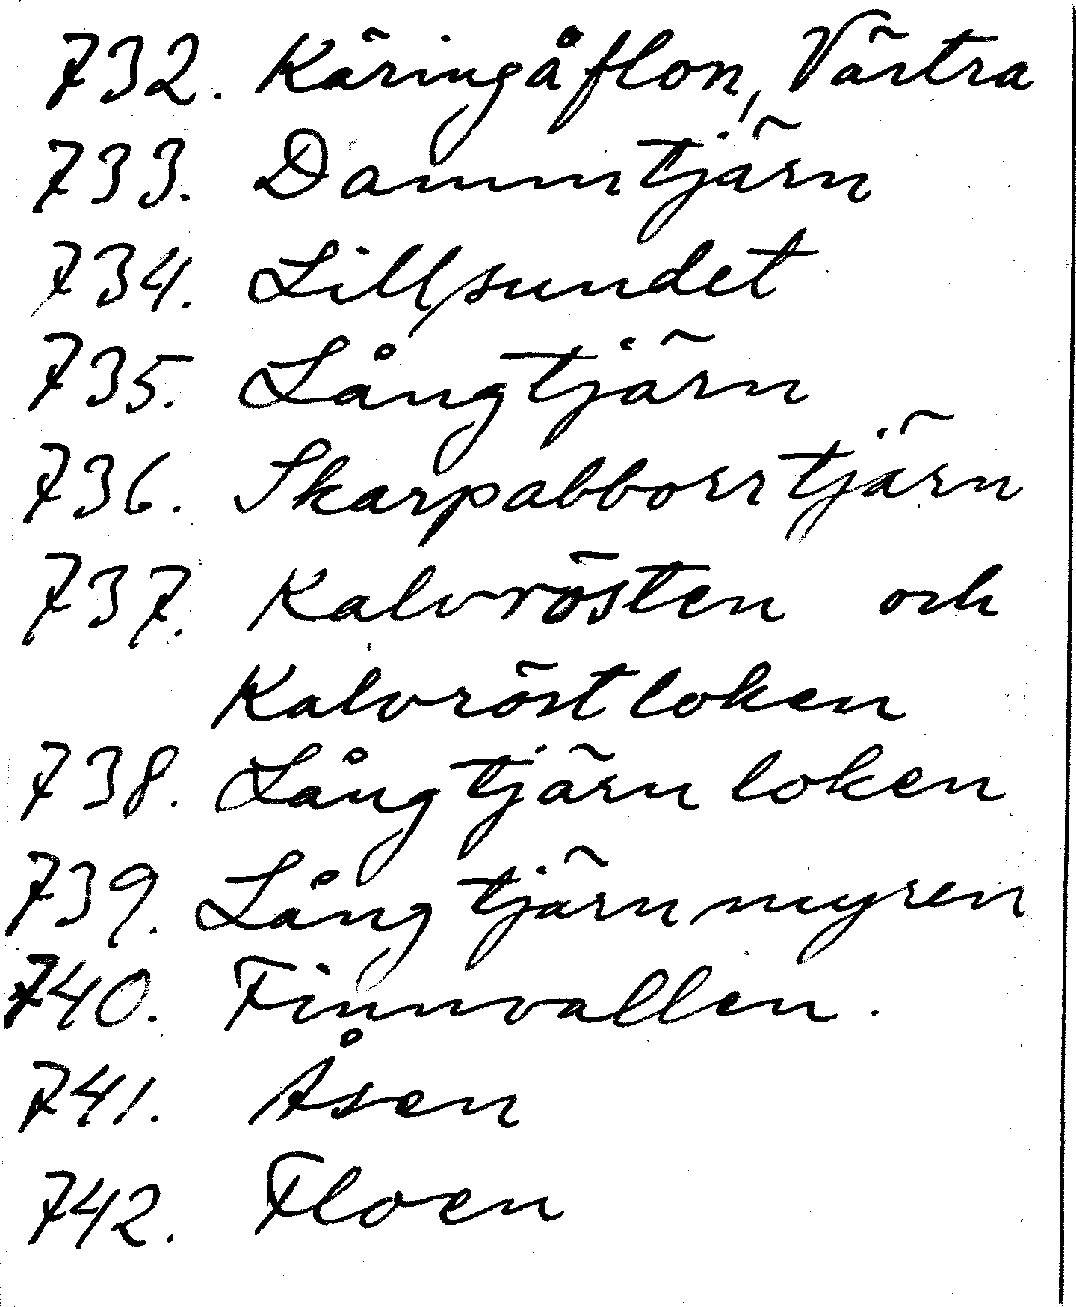 732. Käringåflon, Västra
733. Dammtjärn
734. Lillsundet
735. Långtjärn
736. Skarpabborrtjärn
737. Kalvrösten och
Kalvröstloken
738. Långtjärnloken
739. Långtjärnmyren
740. Finnvallen.
741. Åsen
742. Floen